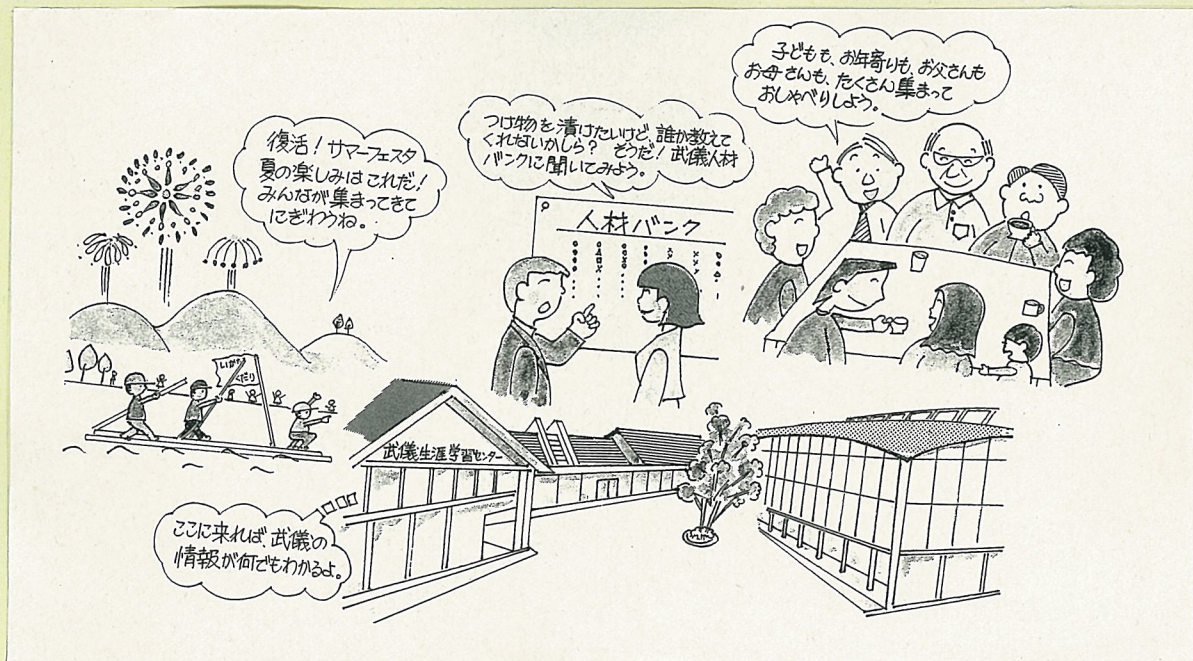 復活！サマーフェスタ
夏の楽しみはこれだ！
みんなが集まってきて
にぎわうね。
つけ物を漬けたいけど、誰か教えて
くれないかしら？ そうだ！武儀人材
バンクに聞いてみよう。
子どもも、お年寄りも、お父さんも
お母さんも、たくさん集まって
おしゃべりしよう。
人材バンク
いかだ
くだり
武儀生涯学習センター
ここに来れば、武儀の
情報が何でもわかるよ。